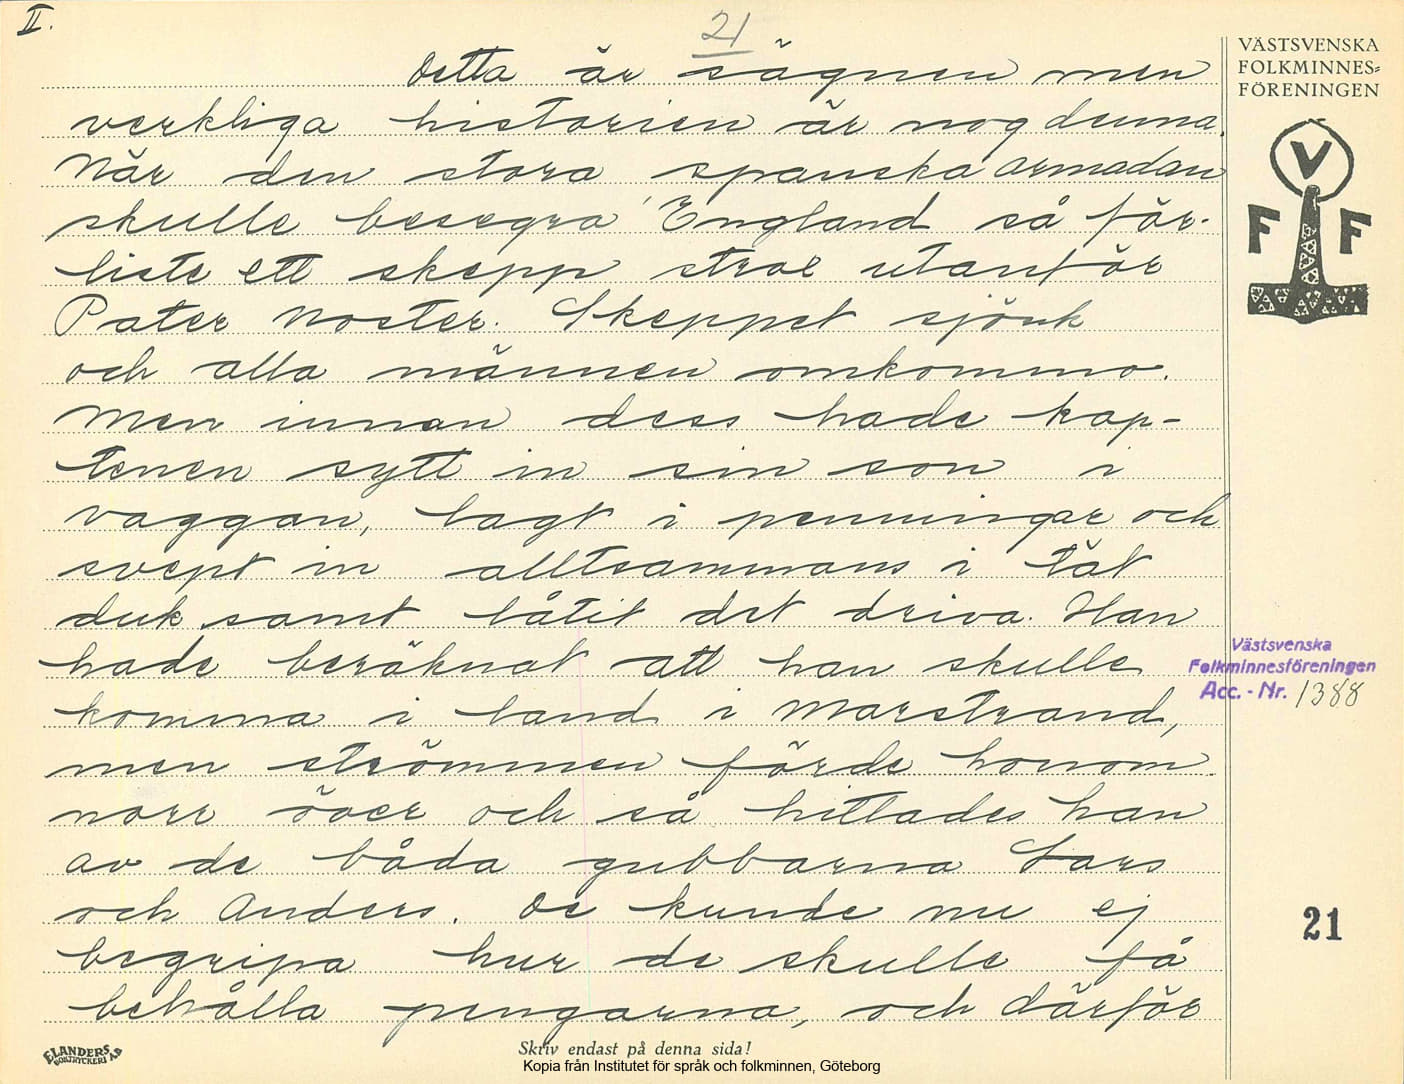 II.
21
Detta är sägnen men
verkliga historien är nog denna.
När den stora spanska armadan
skulle besegra England så för-
liste ett skepp strax utanför
Pater Noster. Skeppet sjönk
och alla männen omkommo.
Men innan dess hade kap-
tenen sytt in sin son i
vaggan, lagt i penningar och
svept in alltsammans i tät
duk samt låtit det driva. Han
hade beräknat att han skulle
komma i land i Marstrand,
men strömmen förde honom
norr över och så hittades han
av de båda gubbarna Lars
och Anders. De kunde nu ej
begripa hur de skulle få
behålla pengarna, och därför
VÄSTSVENSKA
FOLKMINNES=
FÖRENINGEN
V
F F
Västsvenska
Folkminnesföreningen
Acc. - Nr. 1388
21
ELANDERS
BOKTRYCKERI AB
Skriv endast på denna sida!
Kopia från Institutet för språk och folkminnen, Göteborg